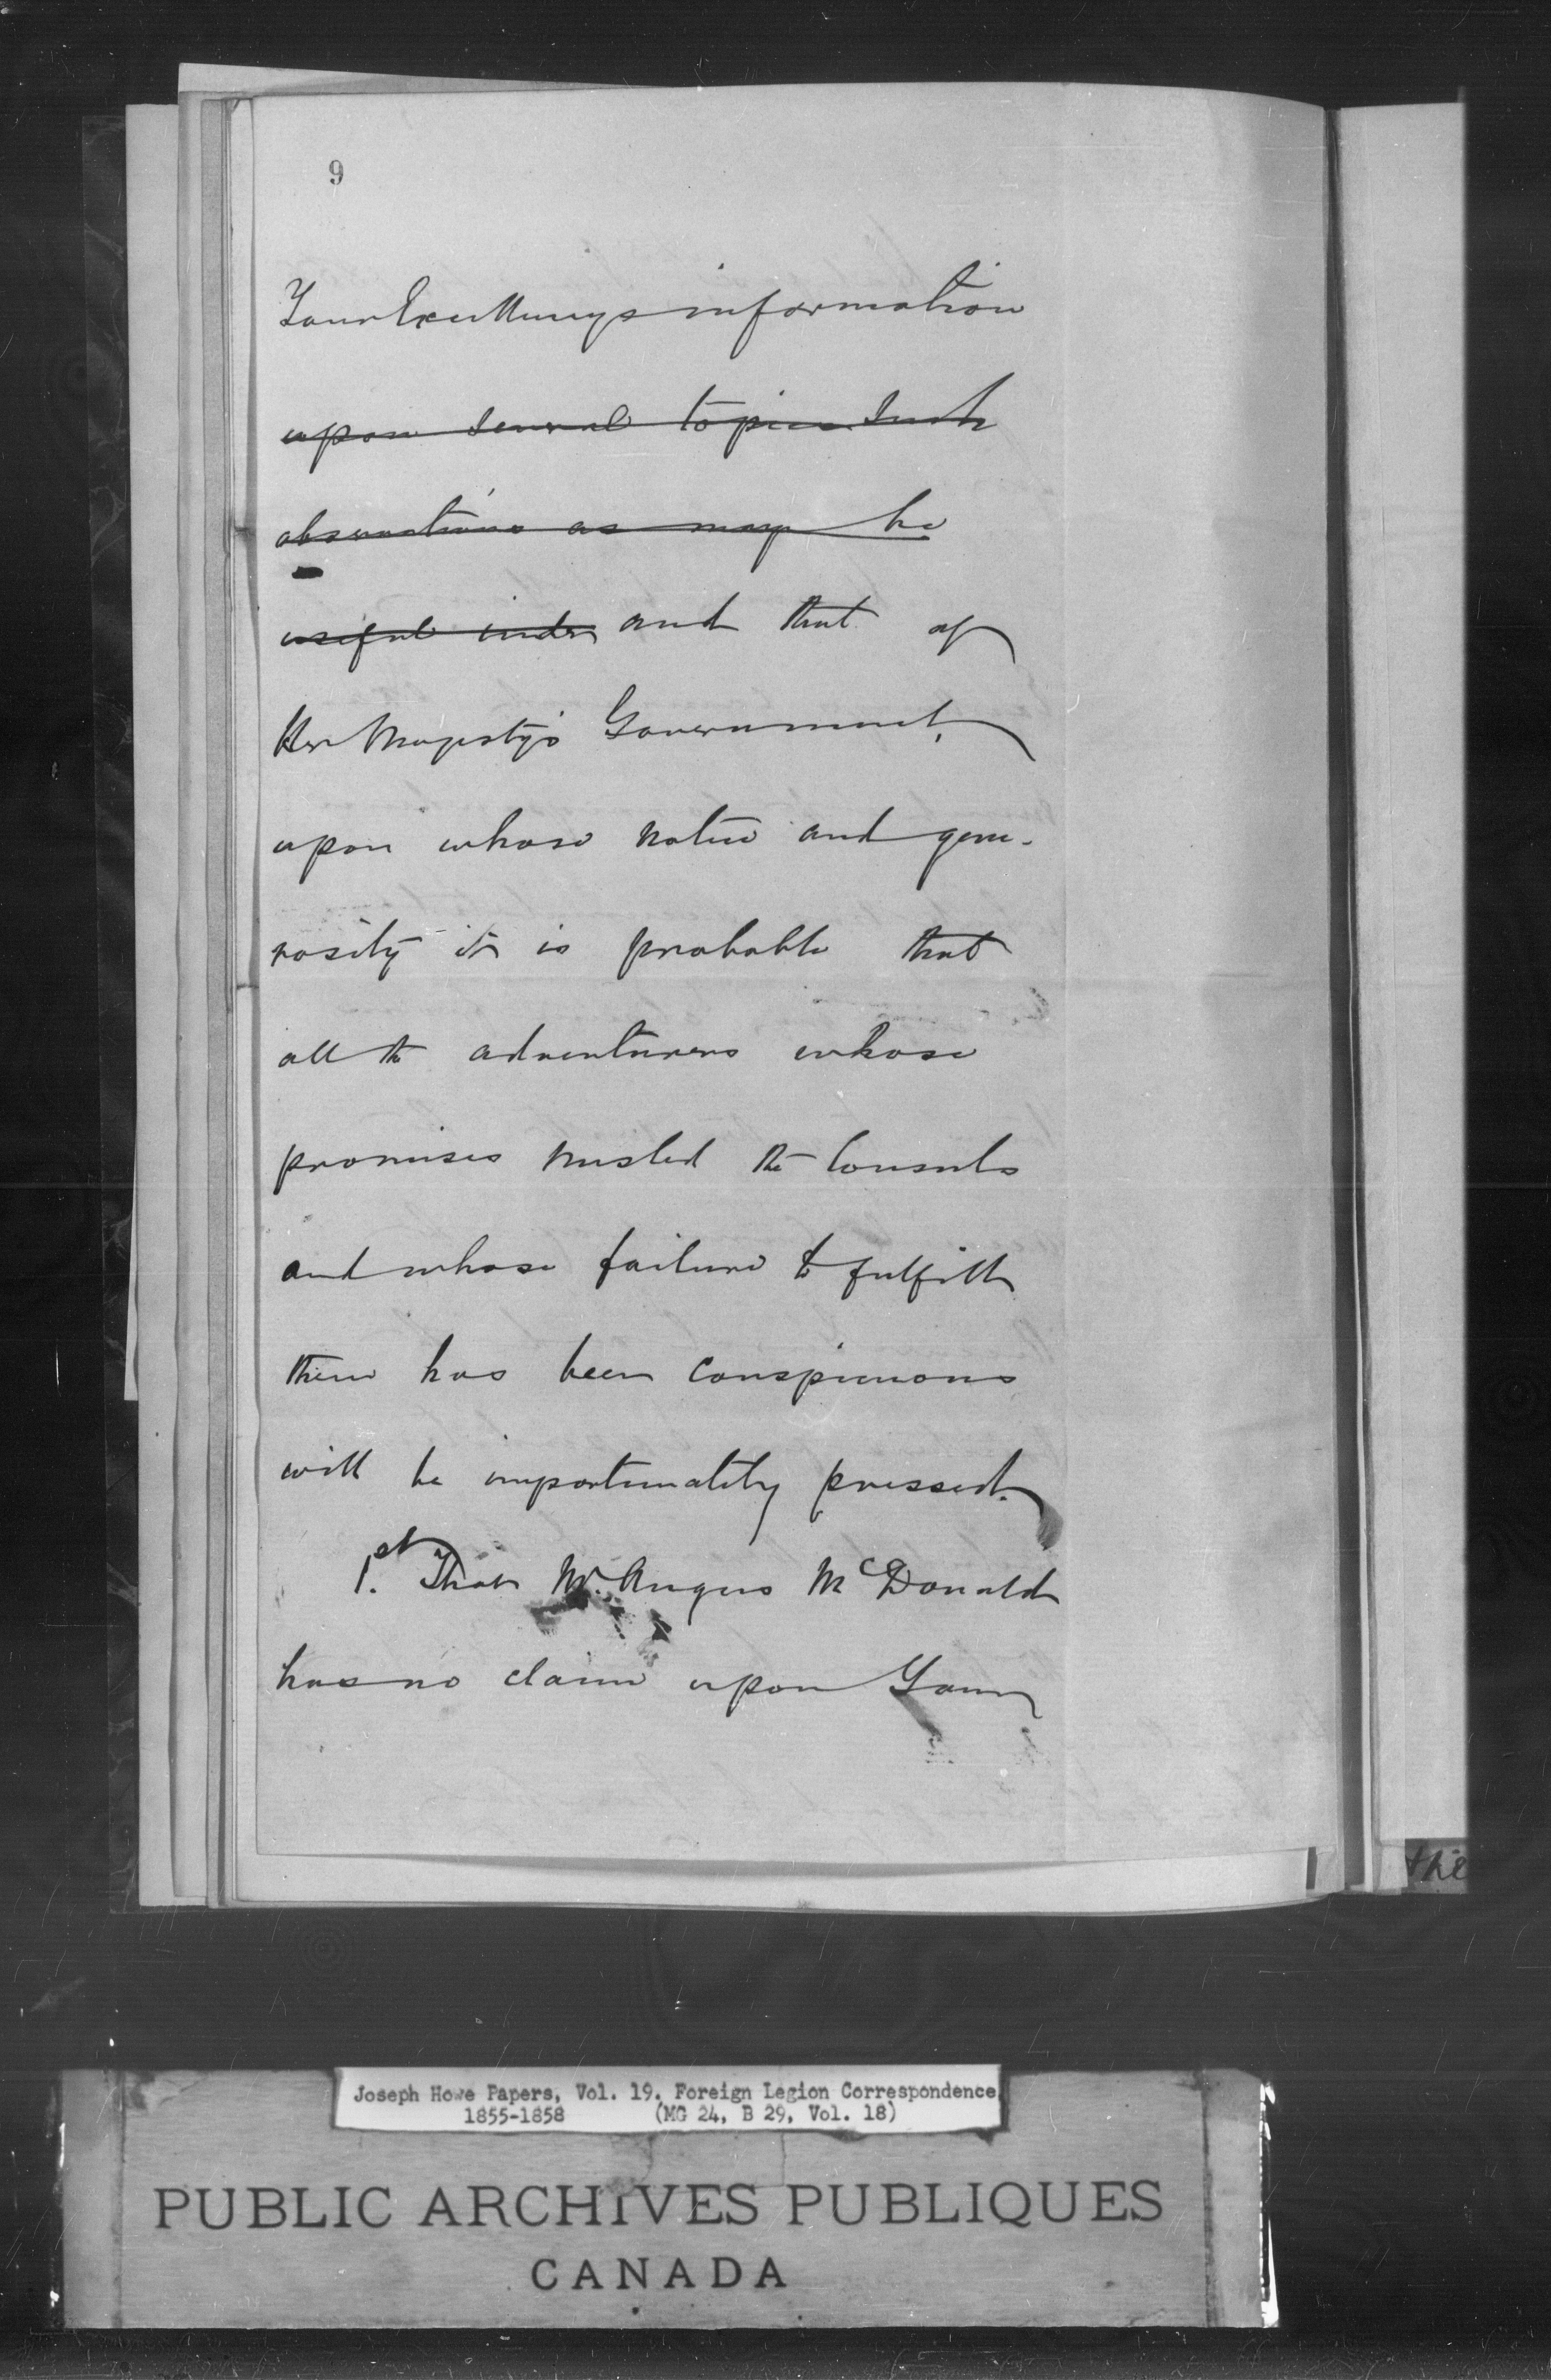 9
Your Excellency's information
upon several topics such
observations as may be
useful under and that of
Her Majesty's Government,
upon whose notice and gene-
rosity it is probable that
all the adventurers whose
promises misled the Consuls
and whose failure to fulfill
them has been conspicuous
will be importunately pressed.
1st. That Mr. Angus McDonald
has no claim upon Your
the
Joseph Howe Papers, Vol. 19. Foreign Legion Correspondence
1855-1858 (MG 24, B 29, Vol. 18)
PUBLIC ARCHIVES PUBLIQUES
CANADA